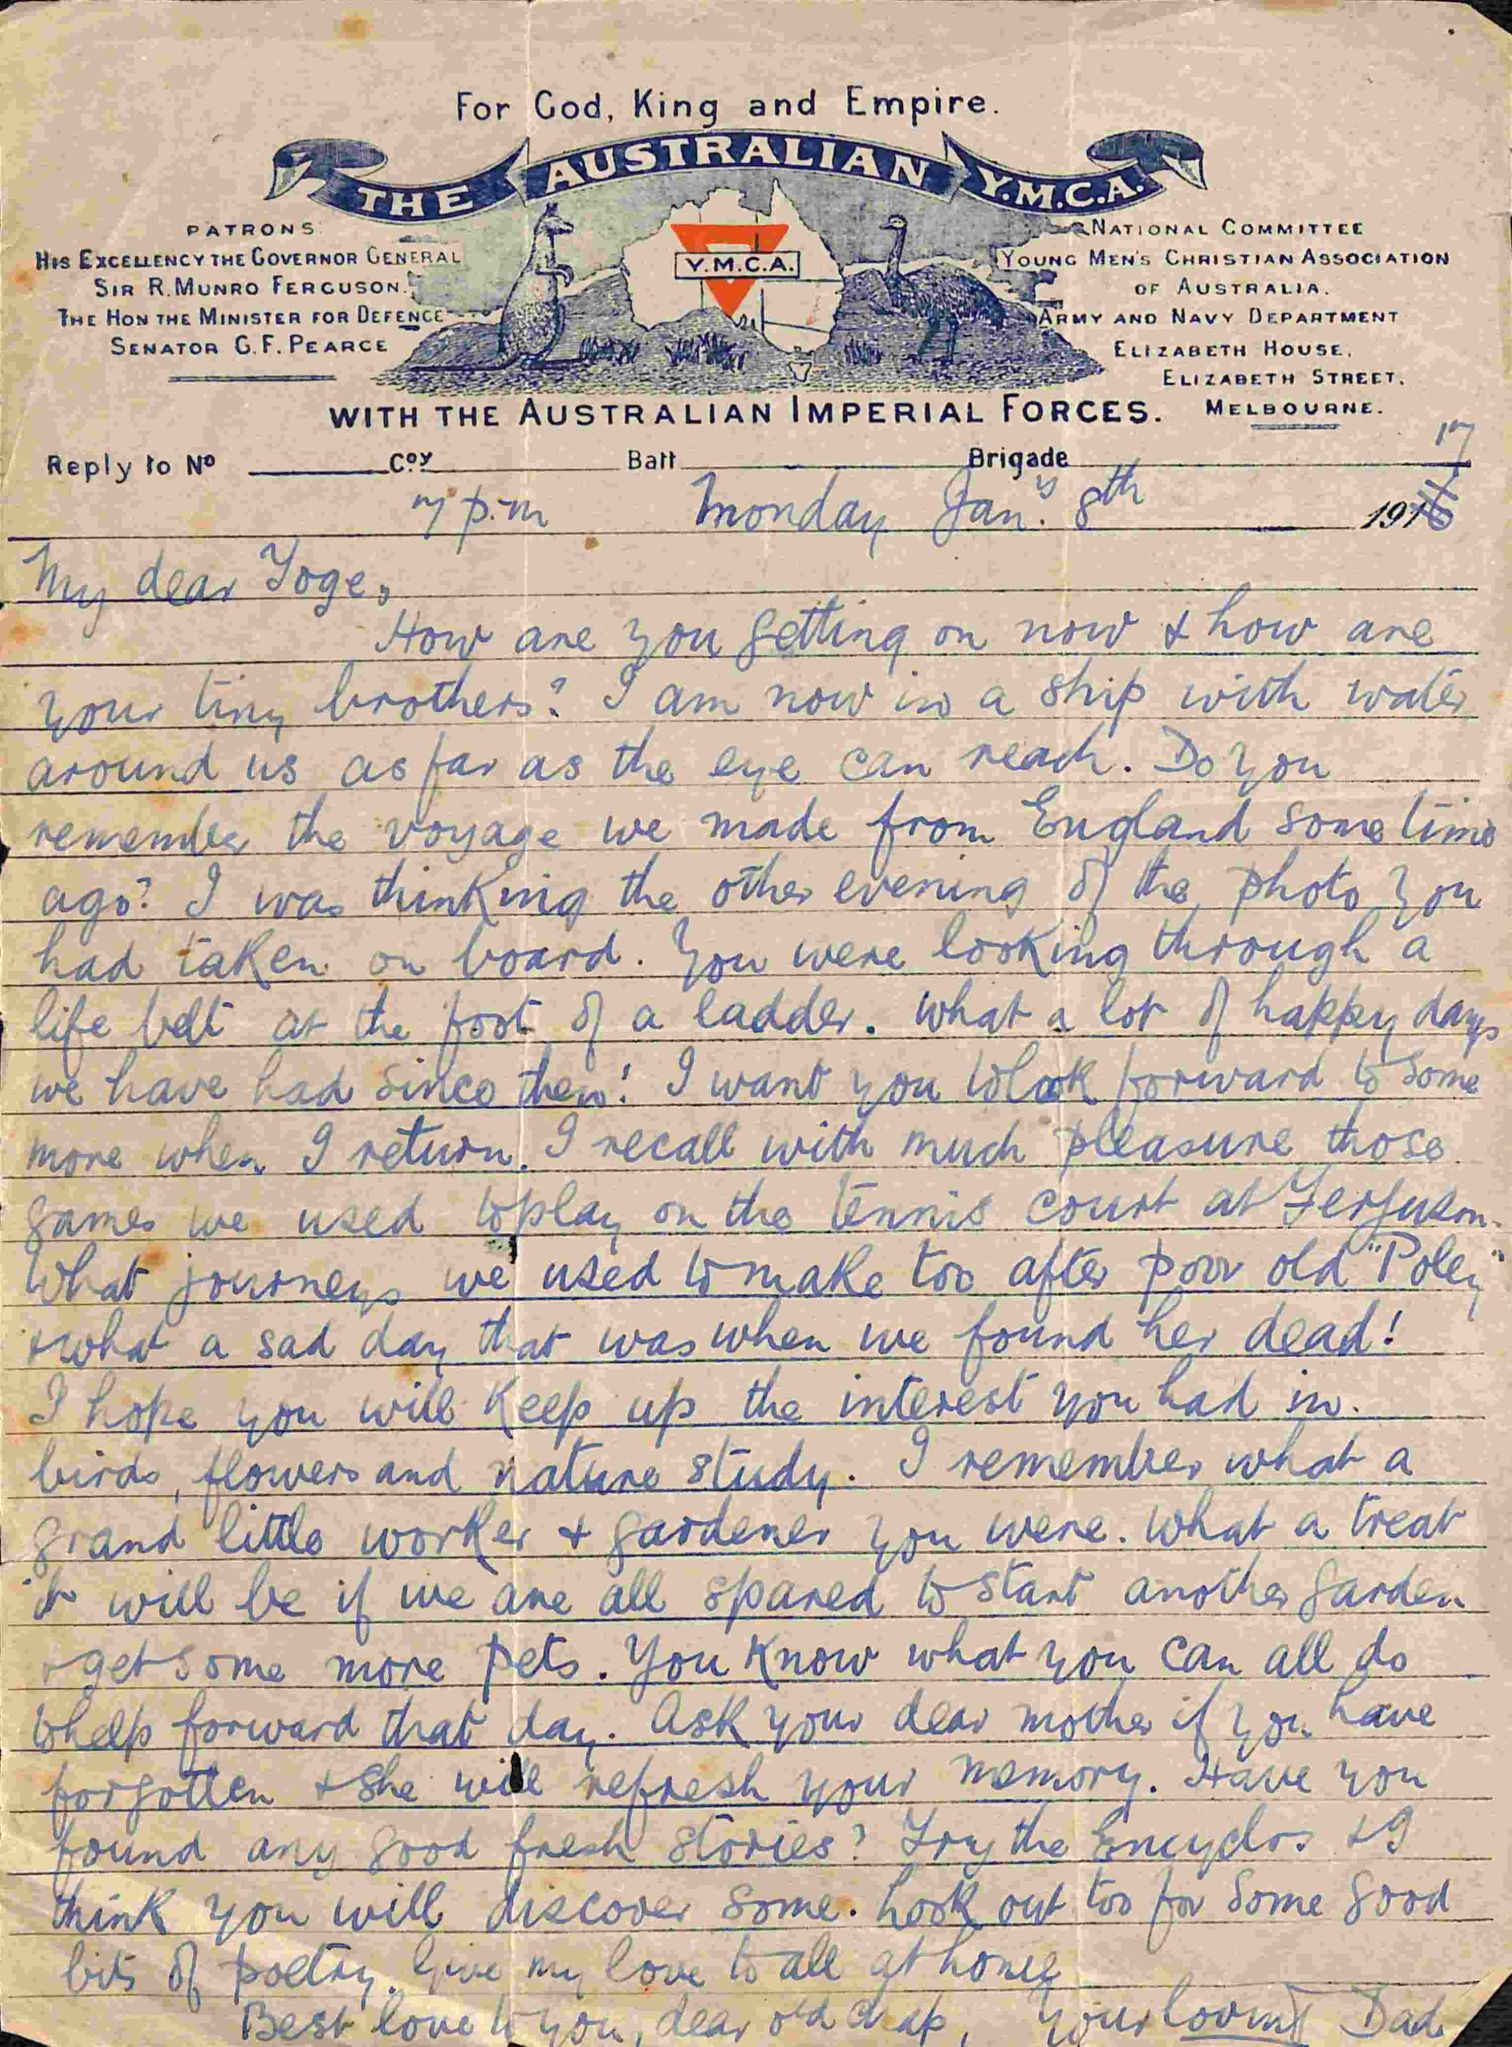 For God, King and Empire.
THE AUSTRALIAN Y.M.C.A.
PATRONS
HIS EXCELLENCY THE GOVERNOR GENERAL
SIR R. MUNRO FERGUSON.
THE HON THE MINISTER FOR DEFENCE
SENATOR G. F. PEARCE
Y.M.C.A.
NATIONAL COMMITTEE
YOUNG MEN'S CHRISTIAN ASSOCIATION
OF AUSTRALIA.
ARMY AND NAVY DEPARTMENT
ELIZABETH HOUSE,
ELIZABETH STREET,
MELBOURNE.
WITH THE AUSTRALIAN IMPERIAL FORCES.
Reply to No Coy Batt Brigade
7 p.m Monday Jany. 8th 1917
My dear Yoge,
How are you getting on now & how are
your tiny brothers? I am now in a ship with water
around us as far as the eye can reach. Do you
remember the voyage we made from England some time
ago? I was thinking the other evening of the photo you
had taken on board. You were looking through a
life belt at the foot of a ladder. What a lot of happy days
we have had since then! I want you to look forward to some
more when I return. I recall with much pleasure those
games we used to play on the tennis court at Ferguson.
What journeys we used to make too after poor old "Poley"
& what a sad day that was when we found her dead!
I hope you will keep up the interest you had in
birds, flowers and nature study. I remember what a
grand little worker & gardener you were. What a treat
it will be if we are all spared to start another garden
& get some more pets. You know what you can all do
to help forward that day. Ask your dear mother if you have
forgotten & she will refresh your memory. Have you
found any good fresh stories? Try the Encyclos & I
think you will discover some. Look out too for some good
bits of poetry. Give my love to all at home
Best love to you, dear old chap, Your loving Dad